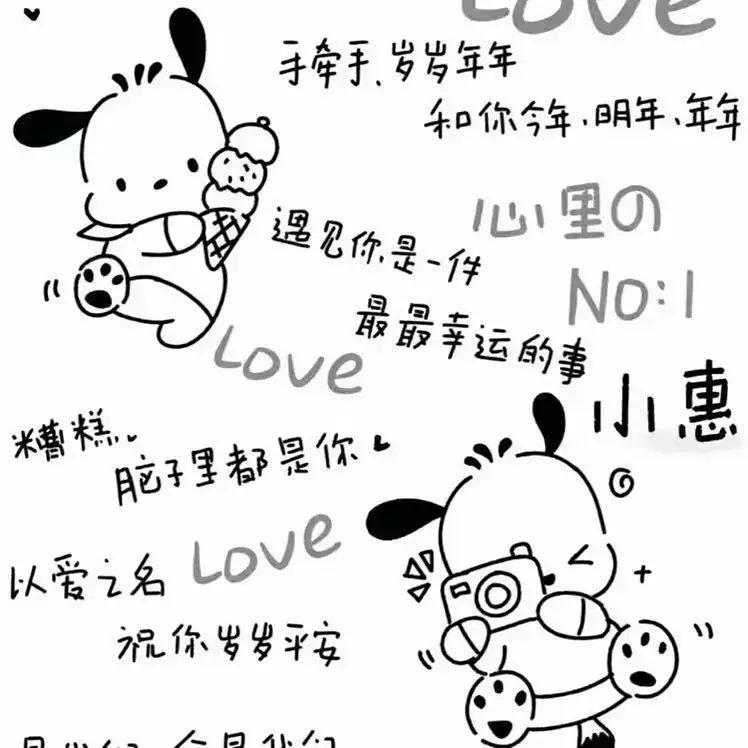 Love
手牵手、岁岁年年
和你今年、明年、年年
心里の
NO:1
遇见你是一件
最最幸运的事
Love
小惠
糟糕、
脑子里都是你
Love
以爱之名
祝你岁岁平安